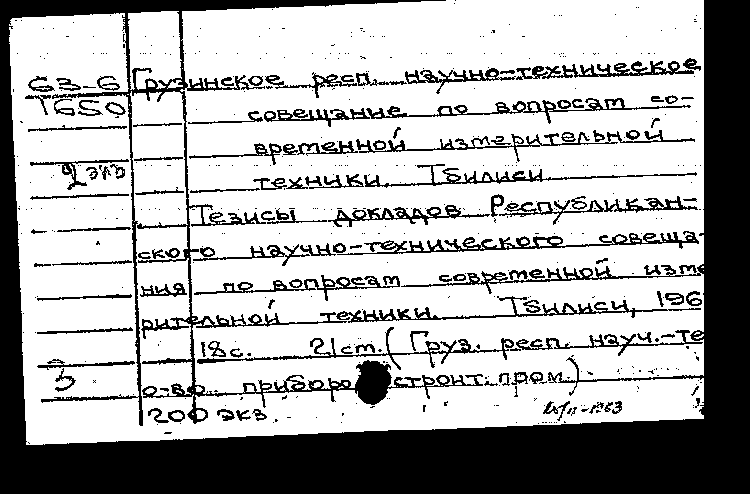 63-6 Грузинское респ. научно-техническое
1650 совещание по вопросам со-
временной измерительной
2 экз техники. Тбилиси
Тезисы докладов Республикан-
ского научно-технического совеща-
ния по вопросам современной изме
рительной техники. Тбилиси, 196
18с. 21 cm. (Груз. респ. науч.-те
3 о-во приборо строит. пром.)
200 экз.